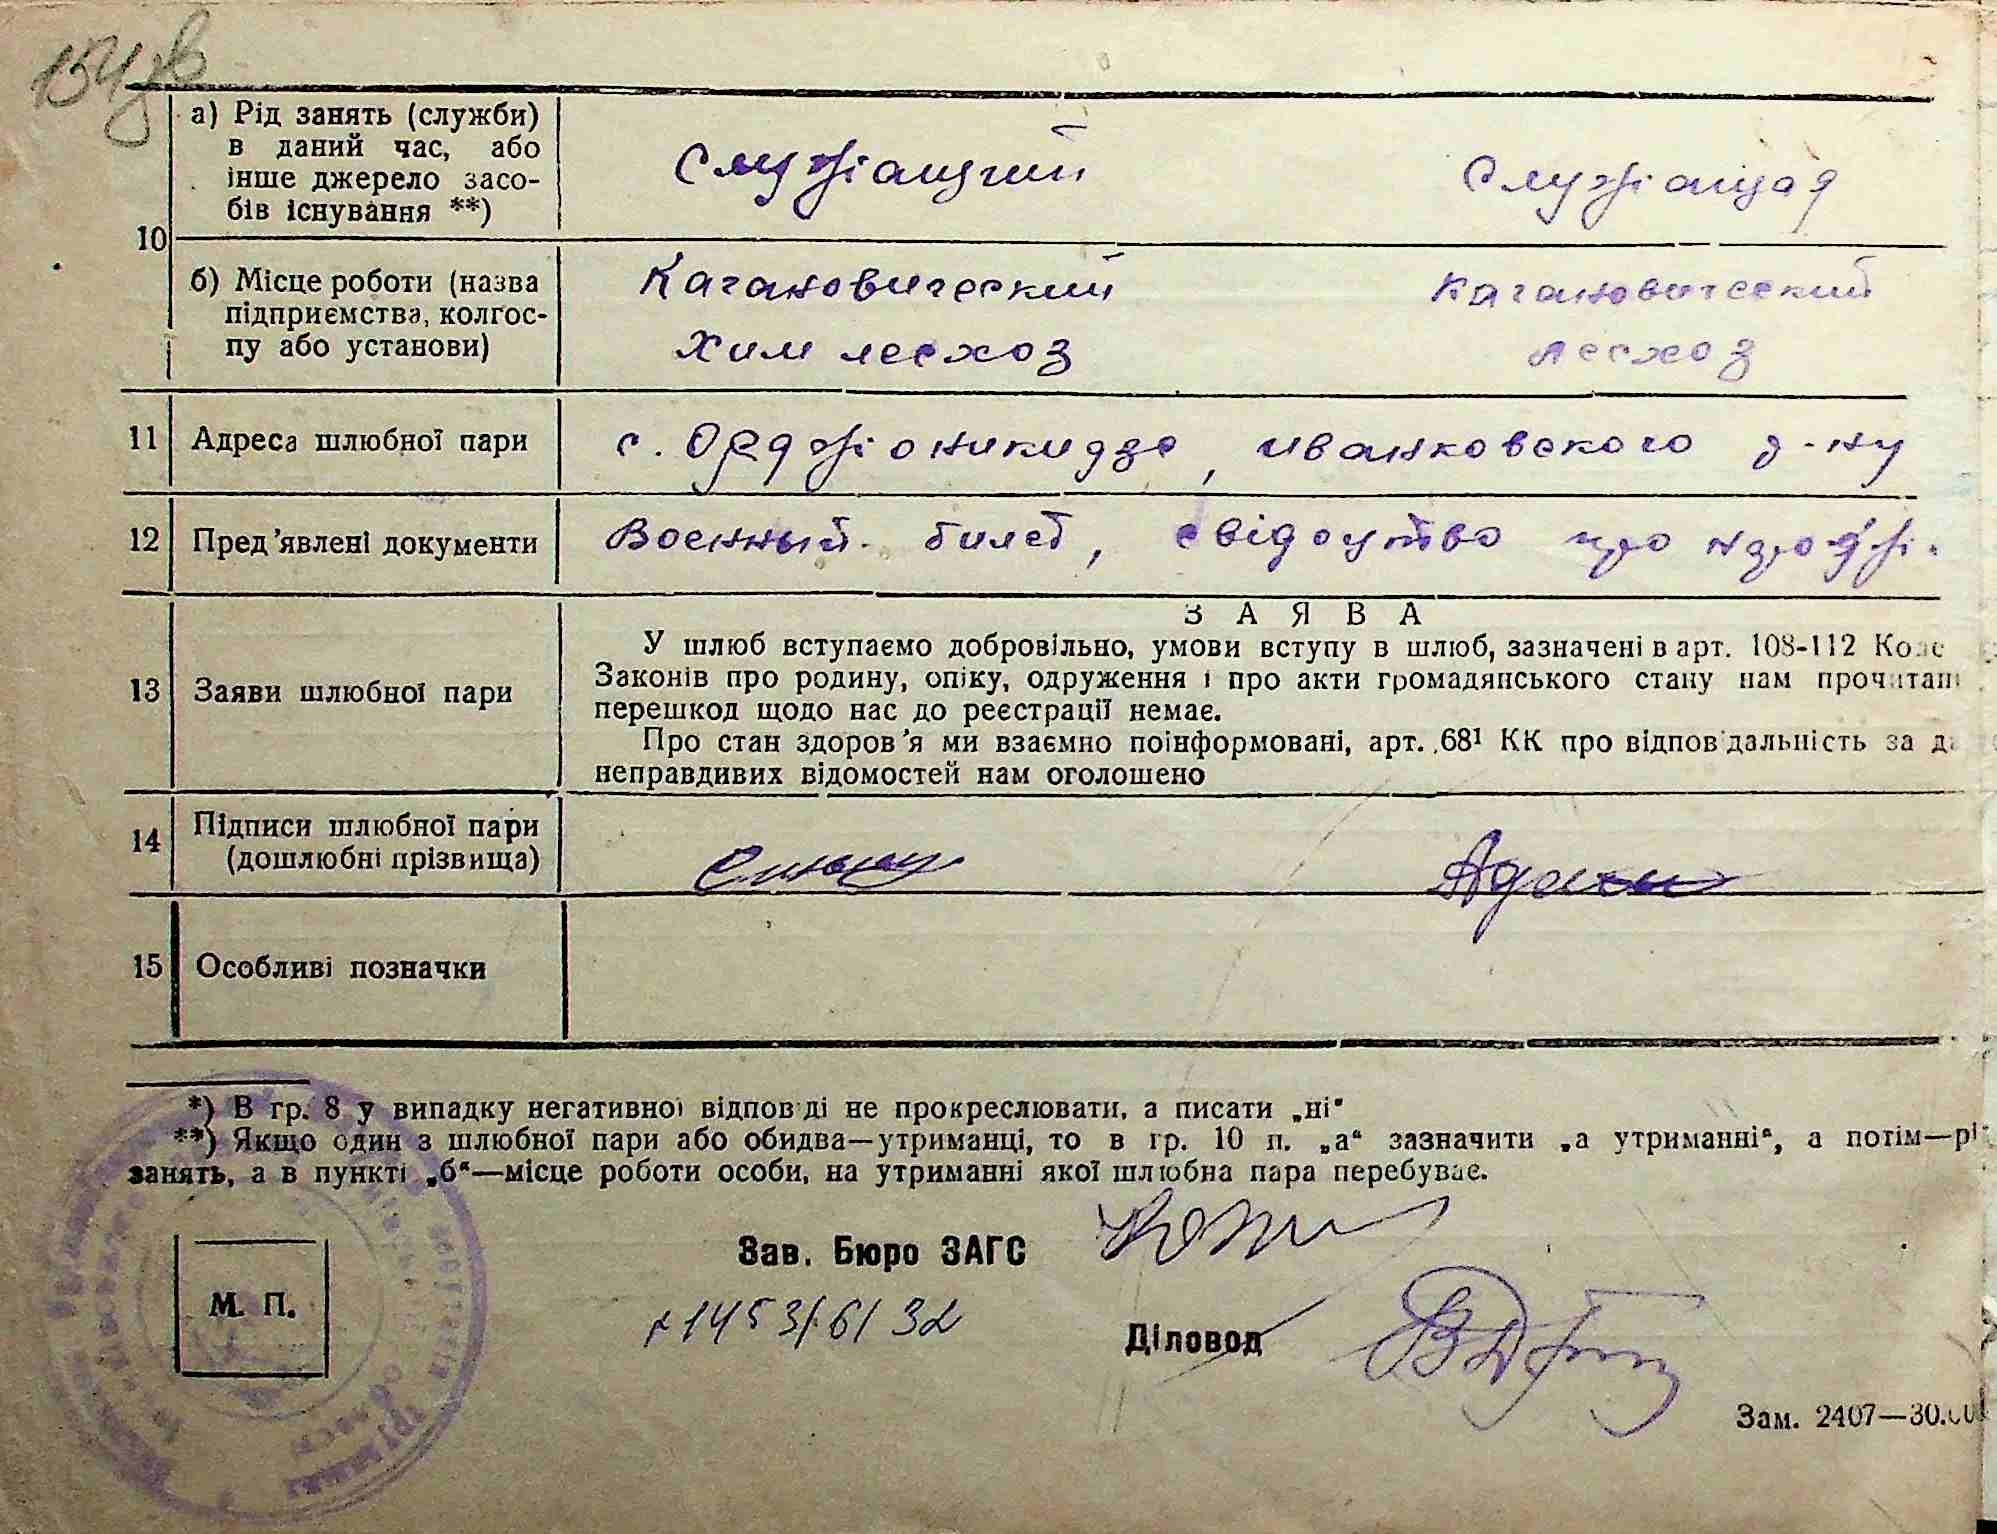 154 зв
10
а) Рід занять (служби)
в даний час, або
інше джерело засо-
бів існування **)
Служащий
Служащая
б) Місце роботи (назва
підприємства, колгос-
пу або установи)
Кагановический
Химлесхоз
Кагановический
лесхоз
11 Адреса шлюбної пари
с. Орджоникидзе, иванковского р-ну
12 Пред'явлені документи
Военный билет, свідоцтво про
13 Заяви шлюбної пари
ЗАЯВА
У шлюб вступаємо добровільно, умови вступу в шлюб, зазначені в арт. 108-112 Коде
Законів про родину, опіку, одруження і про акти громадянського стану нам прочитані
перешкод щодо нас до реєстрації немає.
Про стан здоров'я ми взаємно поінформовані, арт. 68¹ КК про відповідальність за д
неправдивих відомостей нам оголошено
14 Підписи шлюбної пари
(дошлюбні прізвища)
15 Особливі позначки
*) В гр. 8 у випадку негативної відповіді не прокреслювати, а писати „ні"
**) Якщо один з шлюбної пари або обидва—утриманці, то в гр. 10 п. „а" зазначити „а утриманні", а потім—рі
занять, а в пункті „б"—місце роботи особи, на утриманні якої шлюбна пара перебуває.
Зав. Бюро ЗАГС
М. П.
1453/6/32
Діловод
Зам. 2407—30.00